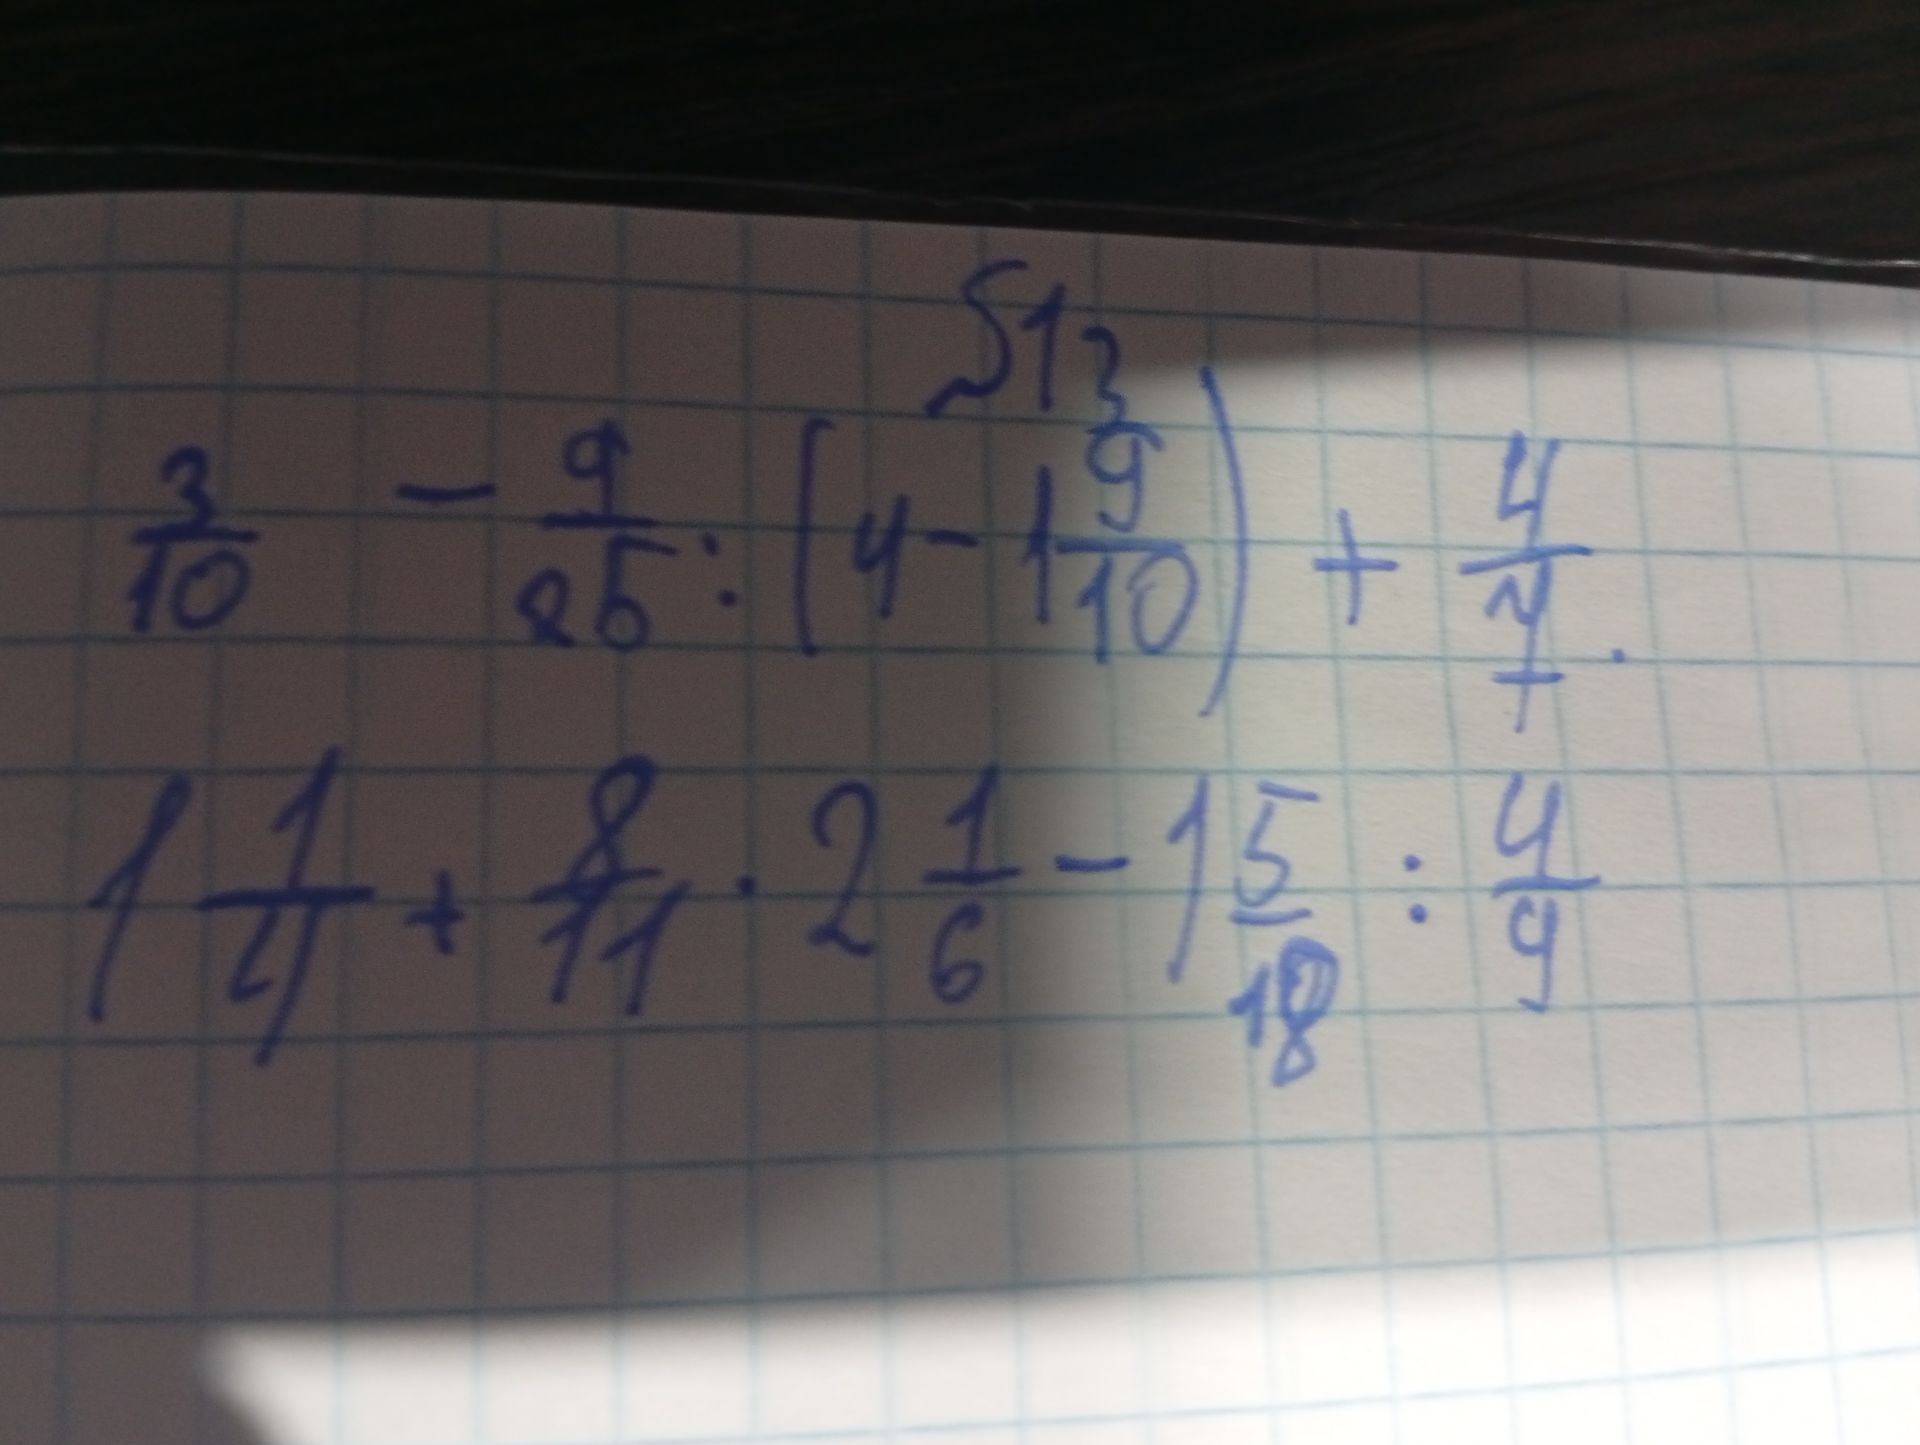 §13
3/10 - 9/25 : (4 - 1 9/10) + 4/7.
1 1/4 + 8/11 · 2 1/6 - 1 5/18 : 4/9